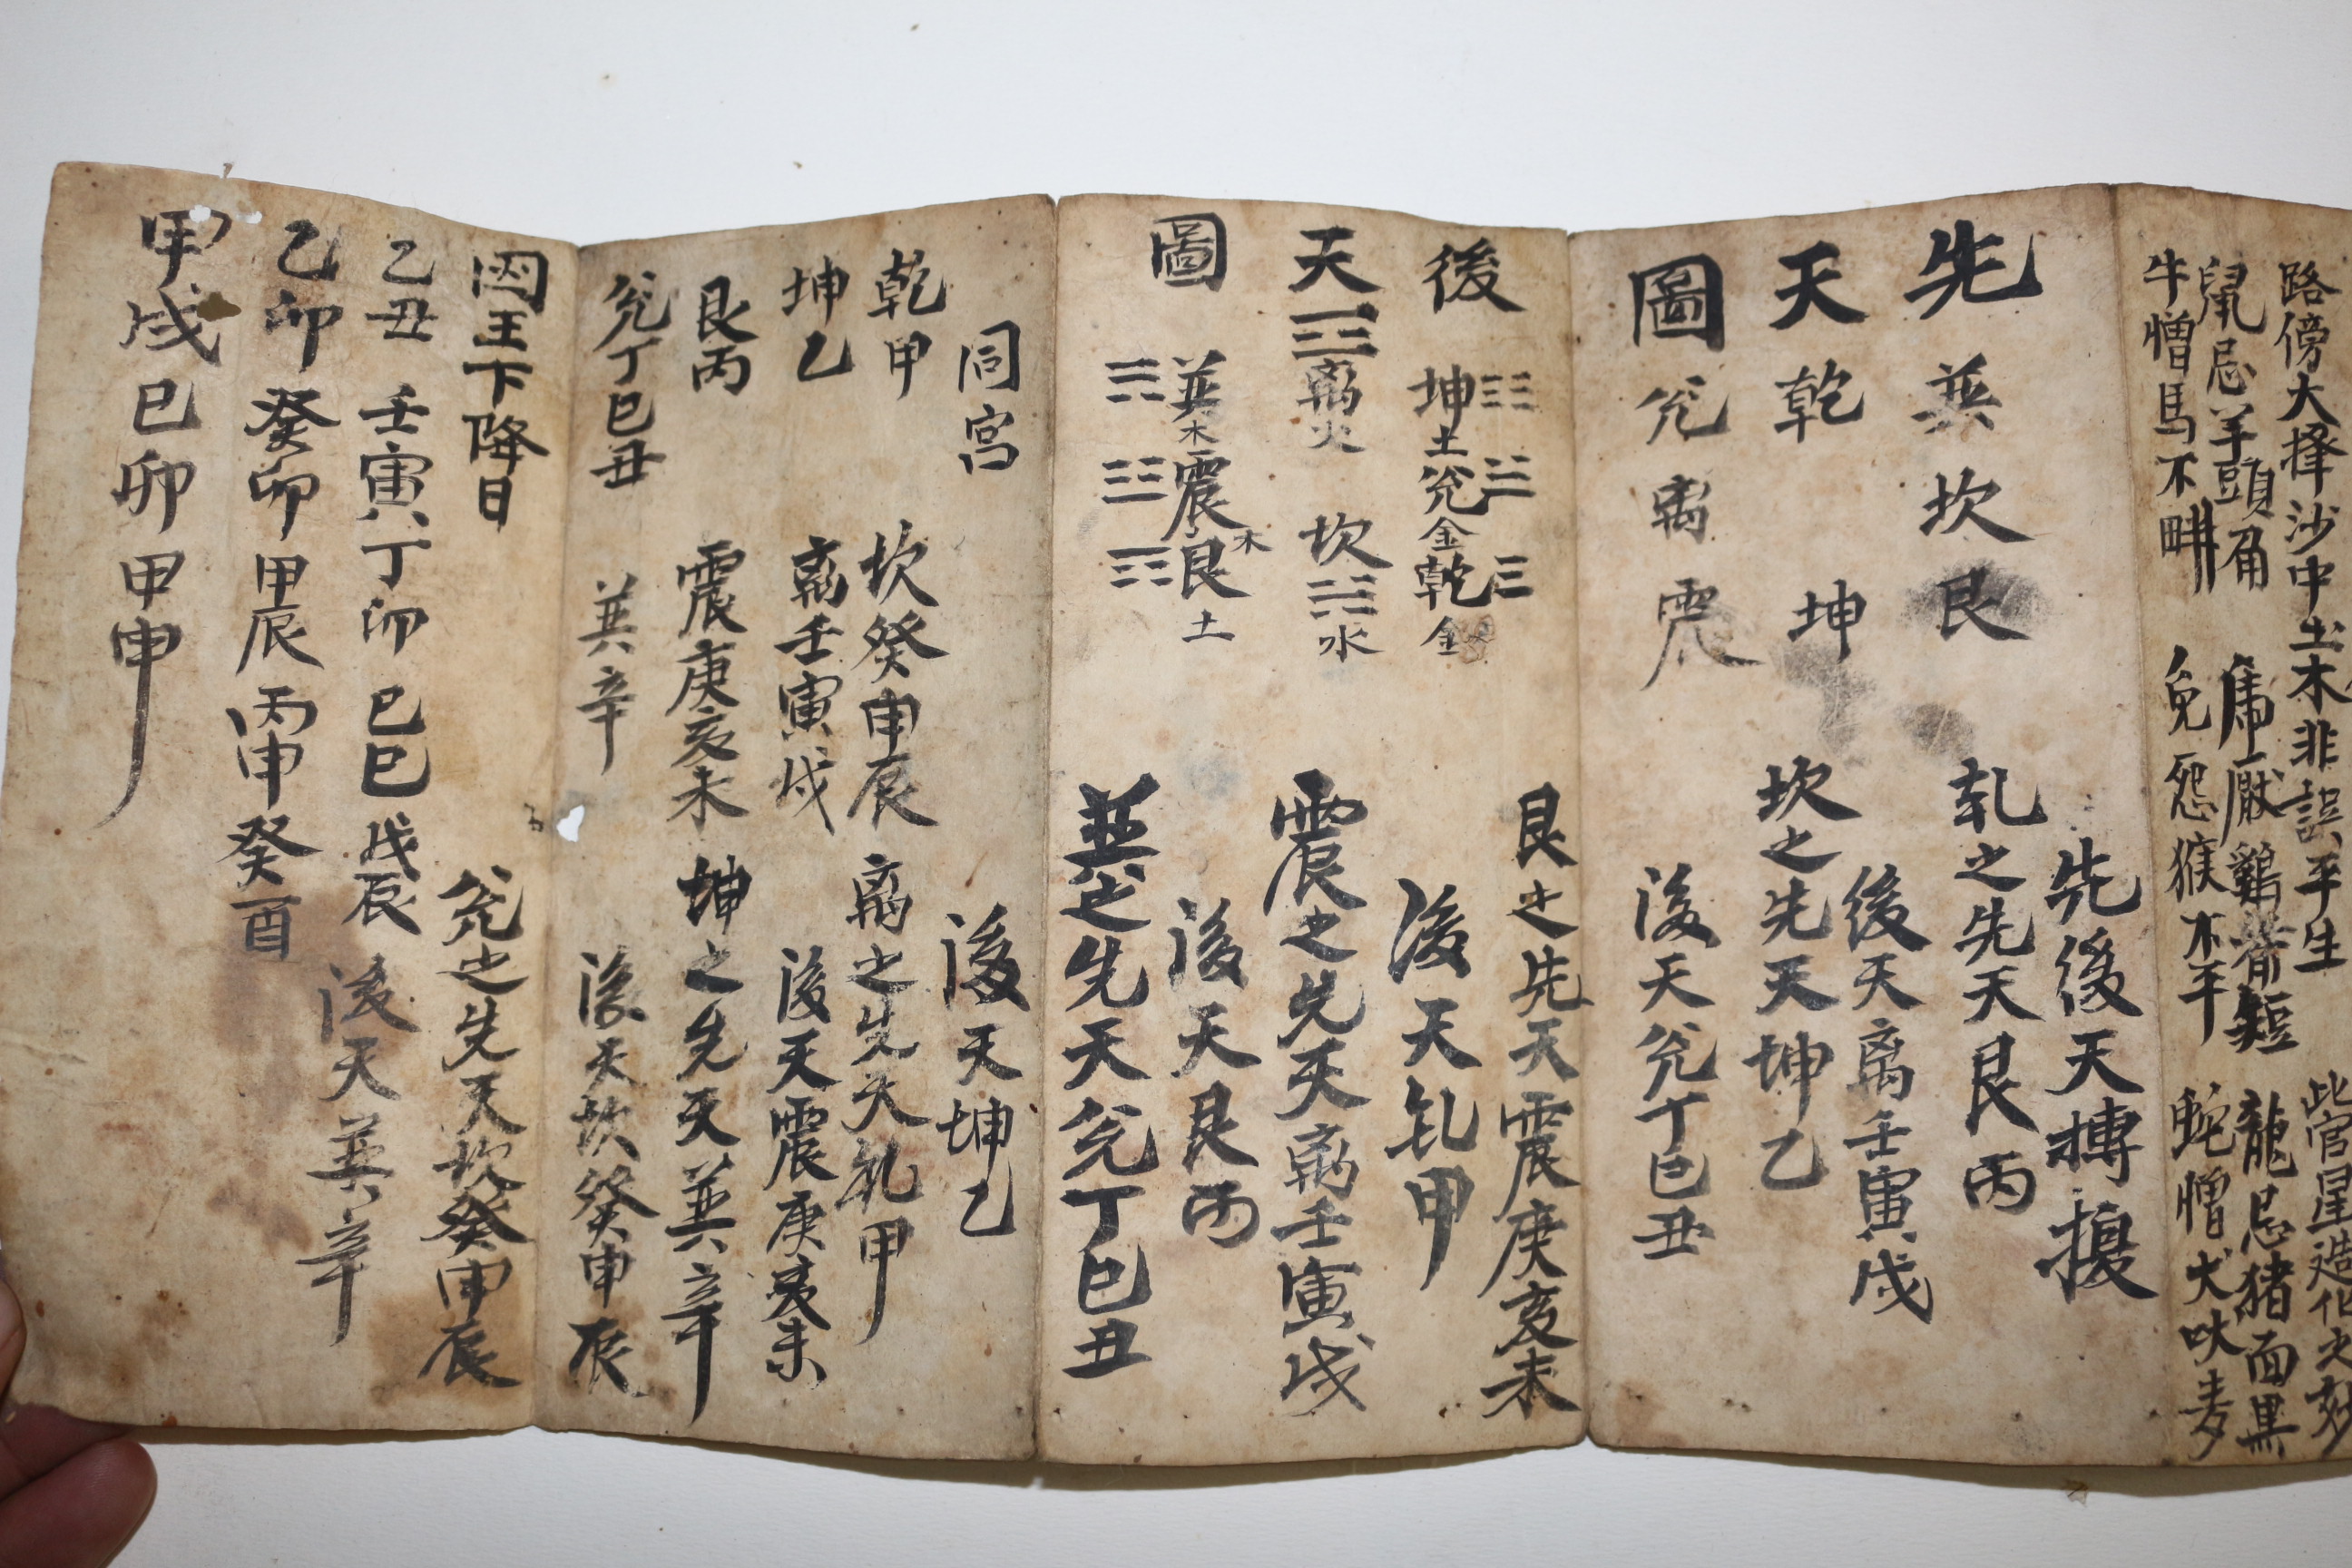 路傍大擇沙中土木非誤平生
此官星造化之妙
鼠忌羊頭角
虎厭鷄觜短
龍忌猪面黑
牛憎馬不畊
兔怨猴不平
蛇憎犬吠声
先天圖
巽坎艮
乾 坤
兊离震
先後天摶擾
乹之先天艮丙
後天离壬寅戌
坎之先天坤乙
後天兊丁巳丑
後天圖
坤土兊金乾金
离火 坎水
巽木震木艮土
艮之先天震庚亥未
後天乹甲
震之先天离壬寅戌
後天艮丙
巽之先天兊丁巳丑
後天坤乙
同宮
乾甲 坎癸申辰
坤乙 离壬寅戌
艮丙 震庚亥未
兊丁巳丑 巽辛
离之先天乹甲
後天震庚亥未
坤之先天巽辛
後天坎癸申辰
兊之先天坎癸申辰
後天巽辛
王下降日
乙丑 壬寅 丁卯 己巳 戊辰
乙卯 癸卯 甲辰 丙申 癸酉
甲戌 己卯 甲申